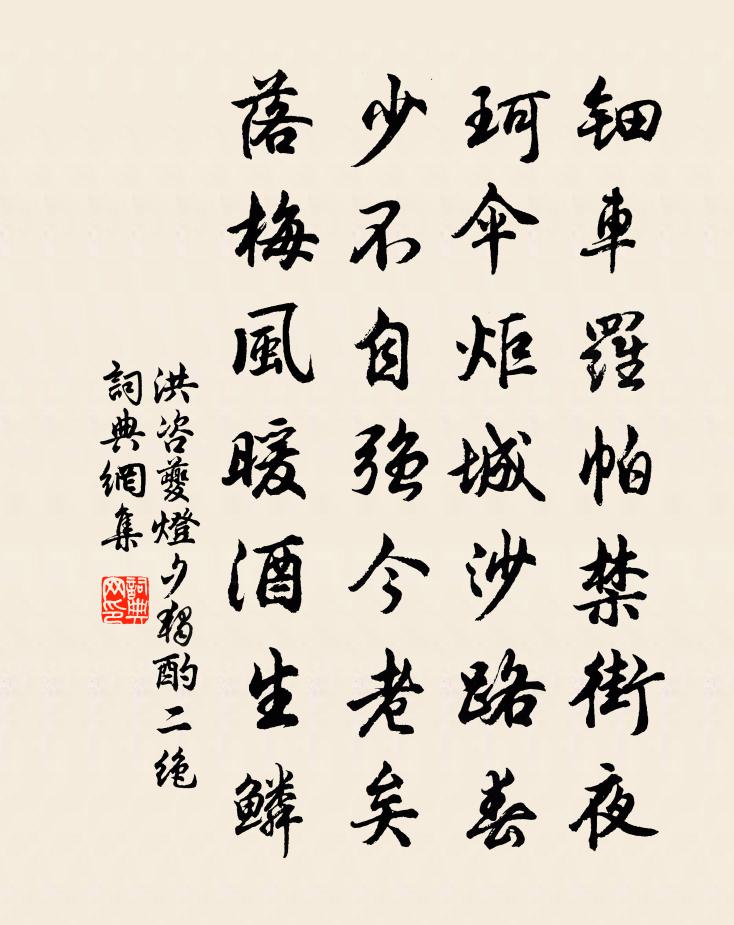 鈿車羅帕禁街夜
珂傘炬城沙路春
少不自強今老矣
落梅風暖酒生鱗
洪咨夔燈夕獨酌二絶
詞典網集
詞典網印